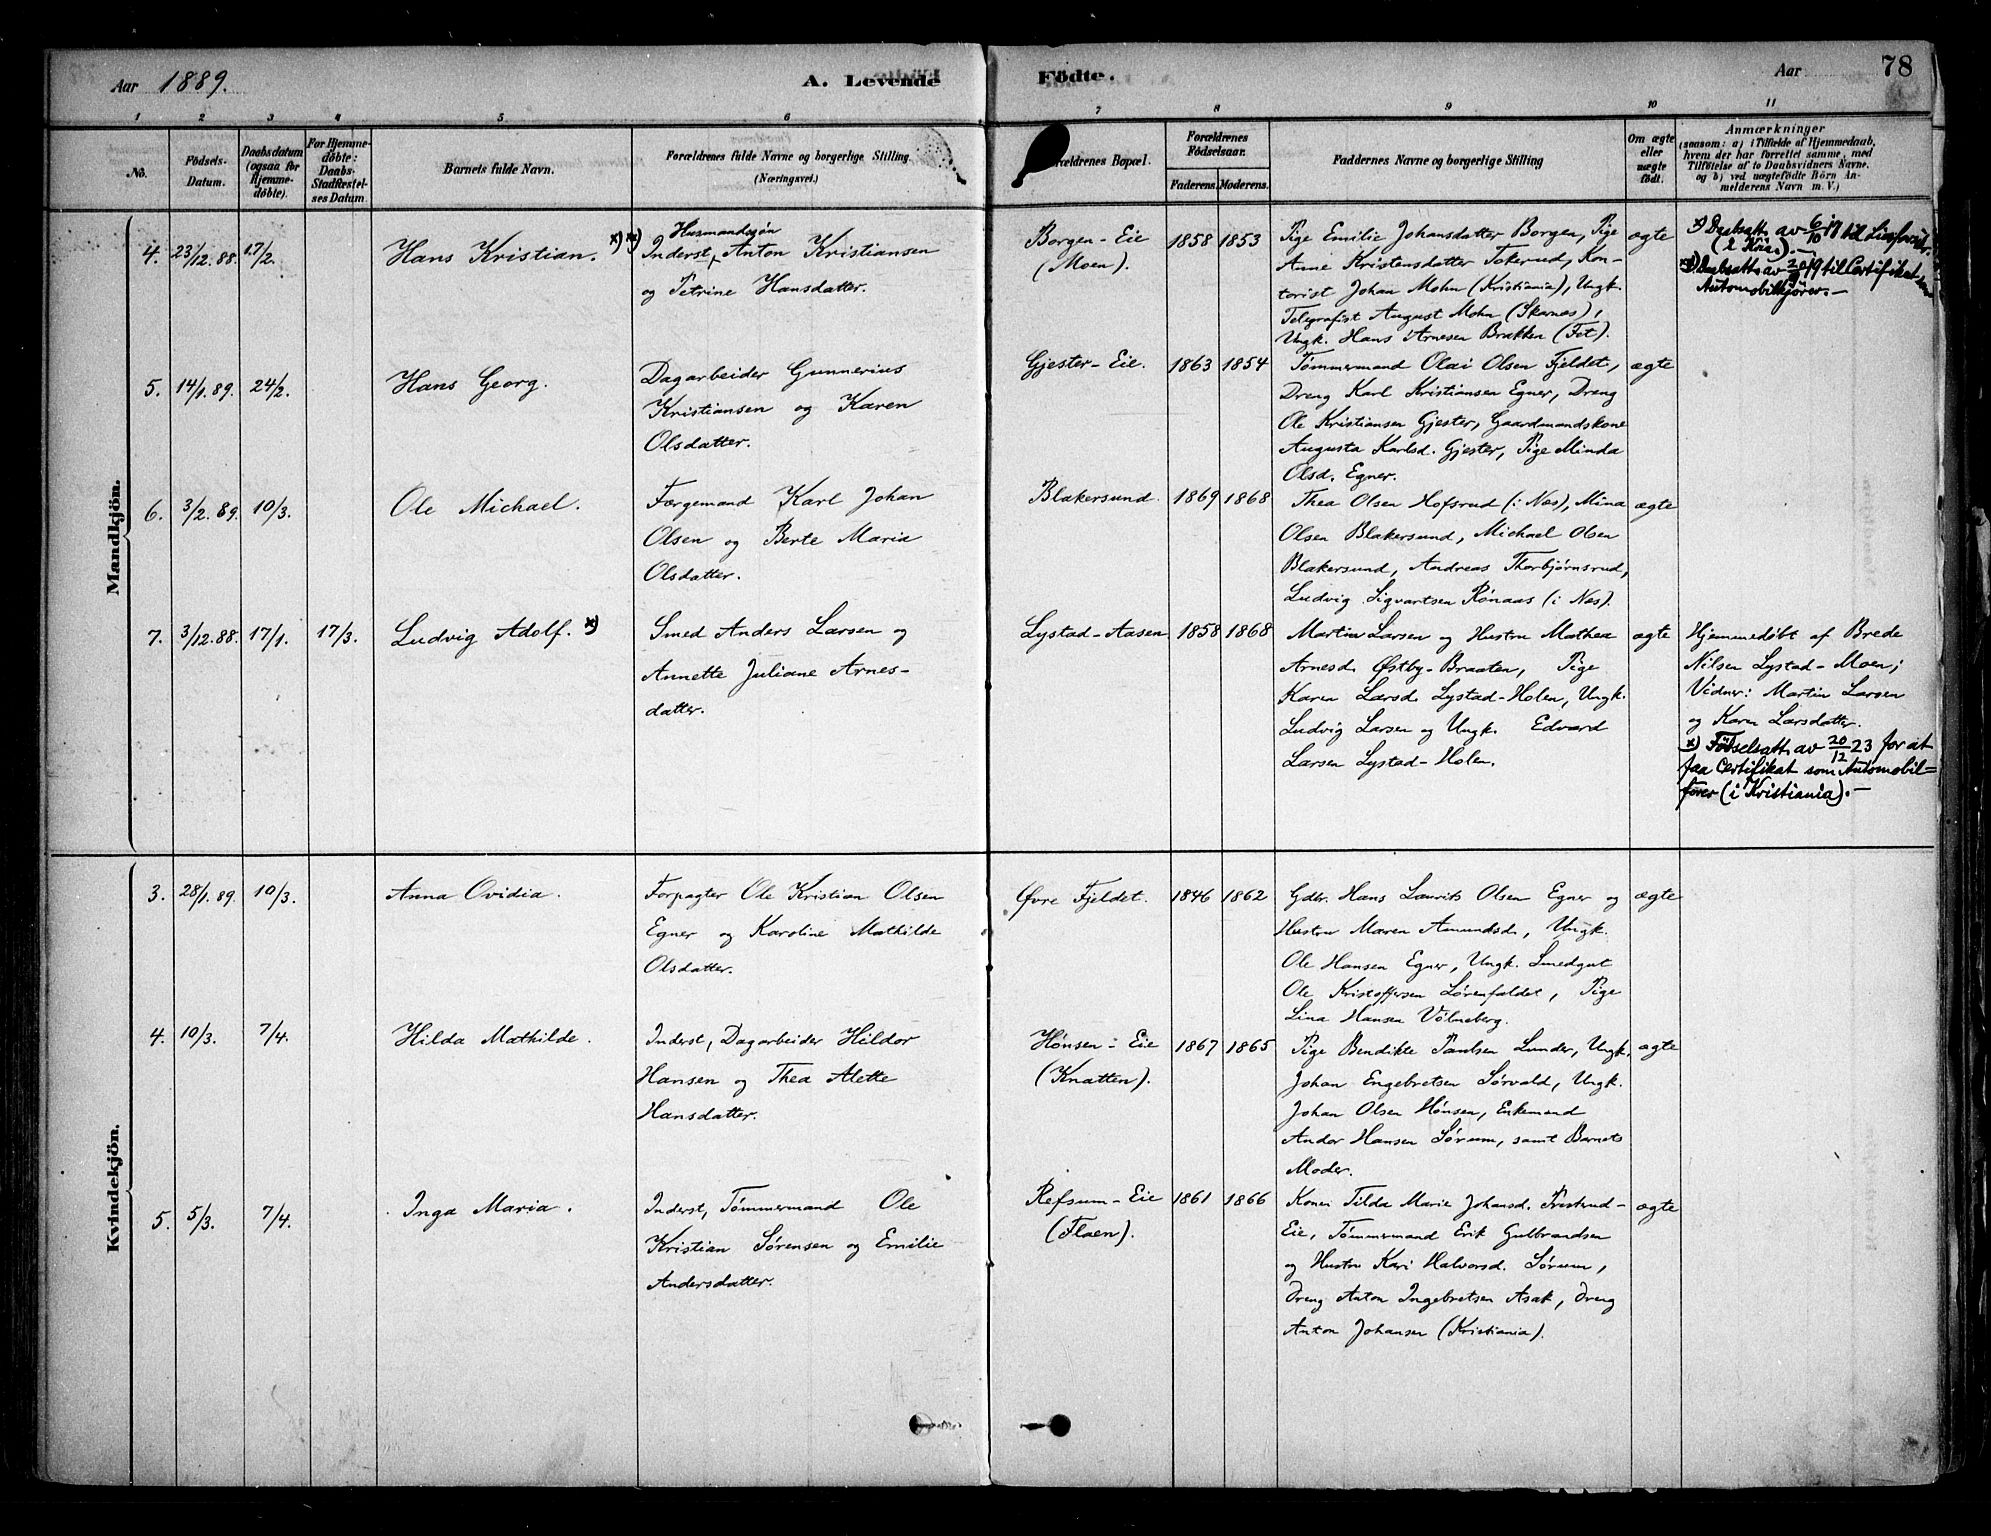 Aar 1889.
A. Levende
Födte.
Aar
78
1 2 3 4 5 6 7 8 9 10 11
No.
Födsels-
Datum.
Daabsdatum
(ogsaa for
Hjemme-
döbte).
For Hjemme-
döbte:
Daabs-
Stadfæstel-
ses Datum.
Barnets fulde Navn.
Forældrenes fulde Navne og borgerlige Stilling
(Næringsvei.)
Forældrenes Bopæl.
Forældrenes
Födselsaar.
Faderens. Moderens.
Faddernes Navne og borgerlige Stilling
Om ægte
eller
uægte
födt.
Anmærkninger
(saasom: a) i Tilfælde af Hjemmedaab,
hvem der har forrettet samme, med
Tilföielse af to Daabsvidners Navne,
og b) ved uægtefödte Börn An-
melderens Navn m. V.)
Mandkjön.
4. 23/12. 88. 17/2.
Hans Kristian. x) x)
Husmandssøn
Inderst, Anton Kristiansen
og Petrine Hansdatter.
Borgen-Eie
(Moen).
1858 1853
Pige Emilie Johansdatter Borgen, Pige
Anne Kristensdatter Tokerud, Kon-
torist Johan Mohn (Kristiania), Ungk.
Telegrafist August Mohn (Skarnes),
Ungk. Hans Arnesen Brakken (Fet).
ægte
x) Daabsatt. av 6/10 17 til
(i Knias).-
x) Daabsatt. av 20/9 19 til Certifikat som
Automobilkjører.-
5. 14/1. 89. 24/2.
Hans Georg.
Dagarbeider Gunnerius
Kristiansen og Karen
Olsdatter.
Gjester-Eie.
1863 1854
Tømmermand Olai Olsen Fjeldet,
Dreng Karl Kristiansen Egner, Dreng
Ole Kristiansen Gjester, Gaardmandskone
Augusta Karlsd. Gjester, Pige Minda
Olsd. Egner.
ægte
6. 3/2. 89. 10/3.
Ole Michael.
Færgemand Karl Johan
Olsen og Berte Maria
Olsdatter.
Blakersund.
1869 1868
Thea Olsen Hofsrud (i Nes), Mina
Olsen Blakersund, Michael Olsen
Blakersund, Andreas Thorbjørnsrud,
Ludvig Sigvartsen Rønaas (i Nes).
ægte
7. 3/12. 88. 17/1. 17/3.
Ludvig Adolf. x)
Smed Anders Larsen og
Annette Juliane Arnes-
datter.
Lystad-Aasen
1858 1868
Martin Larsen og Hustru Mathea
Arnesd. Østby-Braaten, Pige
Karen Larsd. Lystad-Holen, Ungk.
Ludvig Larsen og Ungk. Edvard
Larsen Lystad-Holen.
ægte
Hjemmedøbt af Brede
Nilsen Lystad-Moen;
Vidner: Martin Larsen
og Karen Larsdatter.
x) Fødselsatt. av 20/12 23 for at
faa Certifikat som Automobil=
fører (i Kristiania).-
Kvindekjön.
3. 28/1. 89. 10/3.
Anna Ovidia.
Forpagter Ole Kristian Olsen
Egner og Karoline Mathilde
Olsdatter.
Øvre Fjeldet.
1846 1862
Gdbr. Hans Laurits Olsen Egner og
Hustru Maren Amundsd., Ungk.
Ole Hansen Egner, Ungk. Smedgut
Ole Kristoffersen Sørenfaldet, Pige
Lina Hansen Vølneberg.
ægte
4. 10/3. 7/4.
Hilda Mathilde.
Inderst, Dagarbeider Hildor
Hansen og Thea Alette
Hansdatter.
Hønsen-Eie
(Knatten).
1867 1865
Pige Bendikte Paulsen Lunder, Ungk.
Johan Engebretsen Sørvald, Ungk.
Johan Olsen Hønsen, Enkemand
Andor Hansen Sørum, samt Barnets
Moder.
ægte
5. 5/3. 7/4.
Inga Maria.
Inderst, Tømmermand Ole
Kristian Sørensen og Emilie
Andersdatter.
Refsum-Eie
(Flaen).
1861 1866
Kone Tilda Marie Johansd. Presterud-
Eie, Tømmermand Erik Gulbrandsen
og Hustru Kari Halvorsd. Sørum,
Dreng Anton Ingebretsen Asak, Dreng
Anton Johansen (Kristiania).
ægte